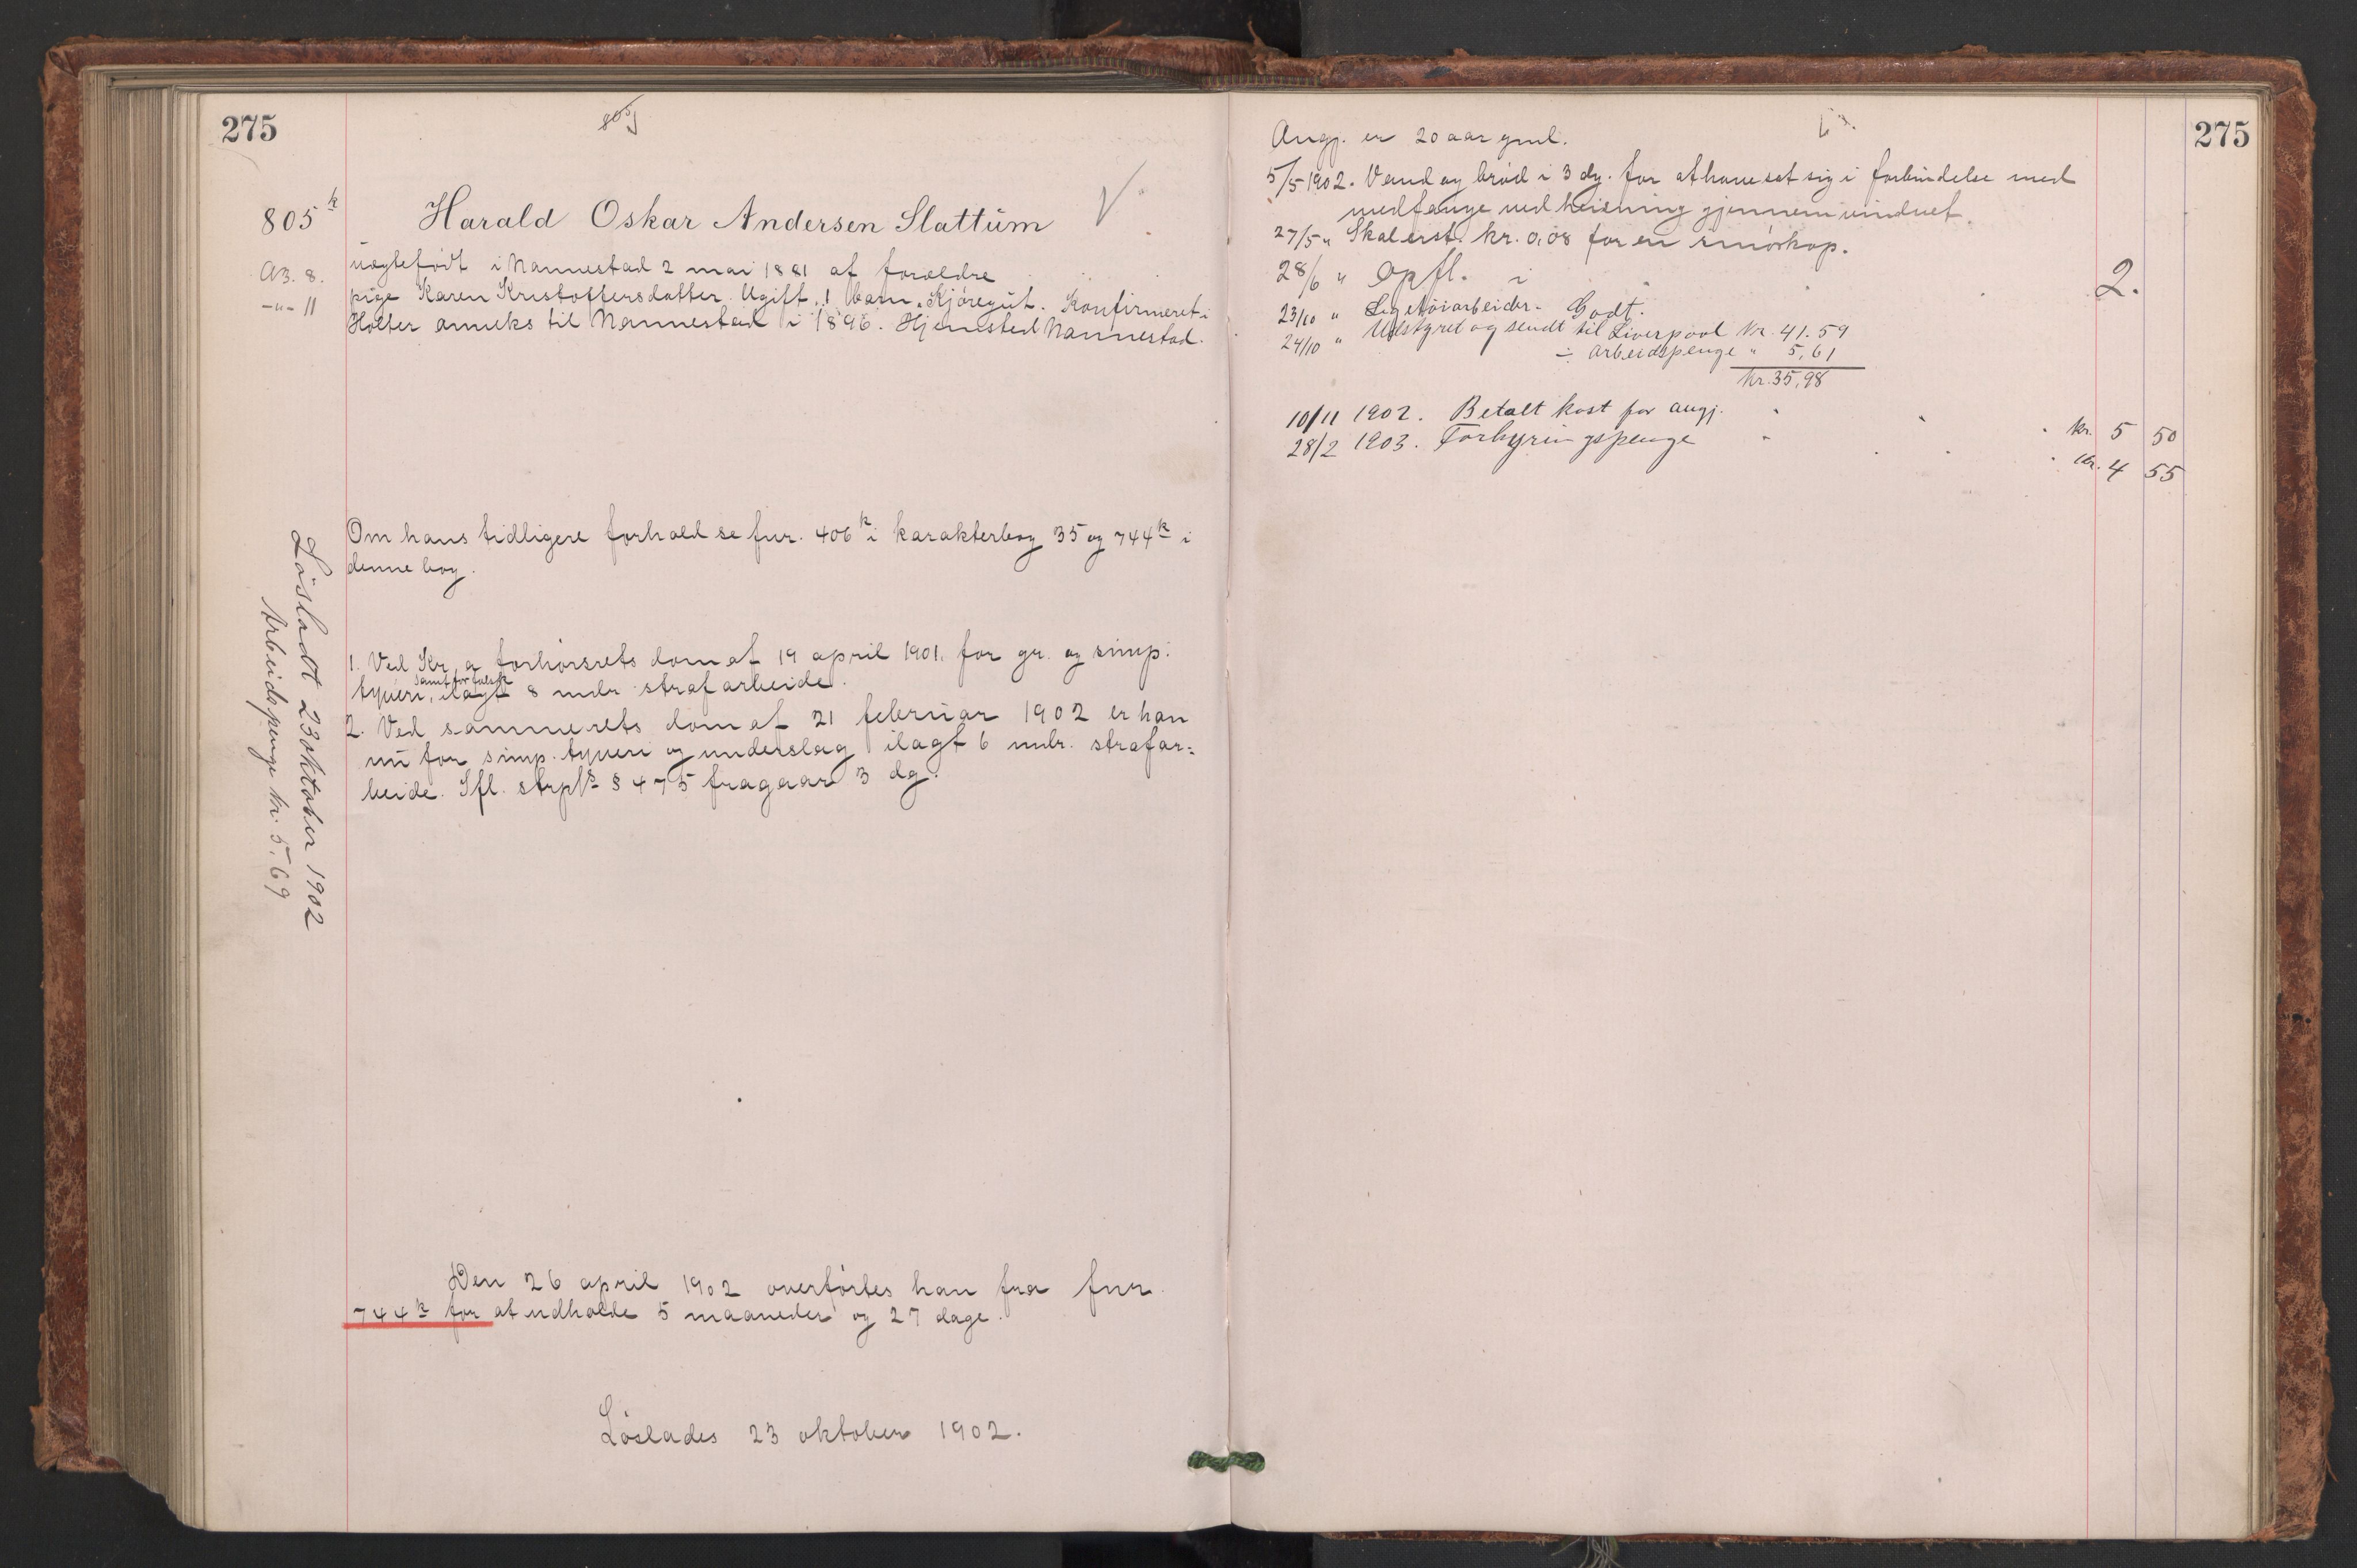 275
805
805k Harald Oskar Andersen Slattum
A3. 8.
-"- 11
uægtefødt i Nannestad 2 mai 1881 af forældre
pige Karen Kristoffersdatter. Ugift, 1 barn. Kjøregut. Konfirmeret i
Holter anneks til Nannestad i 1896. Hjemsted Nannestad.
Om hans tidligere forhold se fnr. 406k i karakterbog 35 og 744k i
denne bog.
Løsladt 23 oktober 1902
Arbeidspenge kr. 5,69
1. Ved Kr.a forhørsrets dom af 19 april 1901. for gr. og simp.
samt for falsk
tyveri, ilagt 8 mdr strafarbeide.
2. Ved sammerets dom af 21 februar 1902 er han
nu for simp. tyveri og underslag ilagt 6 mdr. strafar=
beide. Ifl. strpls § 475 fragaar 3 dg.
Den 26 april 1902 overførtes han fra fnr.
744k for at udholde 5 maaneder og 27 dage.
Løslades 23 oktober 1902.
275
Angj. er 20 aar gml.
5/5 1902. Vand og brød i 3 dg. for at have sat sig i forbindelse med
medfange ved heisning gjennem vinduet.
27/5 " Skal erst. kr. 0,08 for en smørkop.
28/6 " Opfl. i 2.
23/10 " Legetøiarbeider. Godt.
24/10 " Udstyret og sendt til Liverpool kr. 41.59
÷ arbeidspenge " 5,61
kr. 35,98
10/11 1902. Betalt kost for angj. kr. 5 50
28/2 1903. Forhyringspenge kr. 4 55